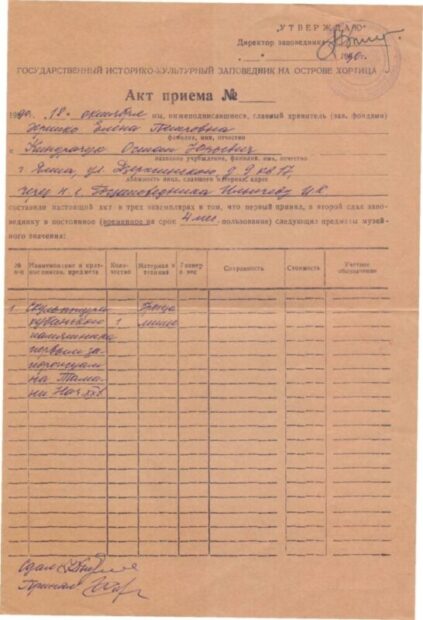 „УТВЕРЖДАЮ"
Директор заповедника
1990 г.
ГОСУДАРСТВЕННЫЙ ИСТОРИКО-КУЛЬТУРНЫЙ ЗАПОВЕДНИК НА ОСТРОВЕ ХОРТИЦА
Акт приема №
1990 г. 18 октября мы, нижеподписавшиеся, главный хранитель (зав. фондами)
Елена Петровна
фамилия, имя, отчество
и Остап
название учреждение, фамилия, имя, отчество
г. Ялта, ул. Дзержинского д. 9, кв. 17,
через н. с.
составили настоящий акт в трех экземплярах в том, что первый принял, а второй сдал запо-
веднику в постоянное (временное на срок 4 мес -пользование) следующих предметы музей-
ного значения:
№ п-п Наименование и крат- кое описан. предмета Коли- чество Материал и техника Размер и вес Сохранность Стоимость Учетное обозначение
1. Скульптура Бронза
кубанского 1 литье
памятника
первым за-
порожцам
на Тама-
ни нач. XX в
Сдал
Принял